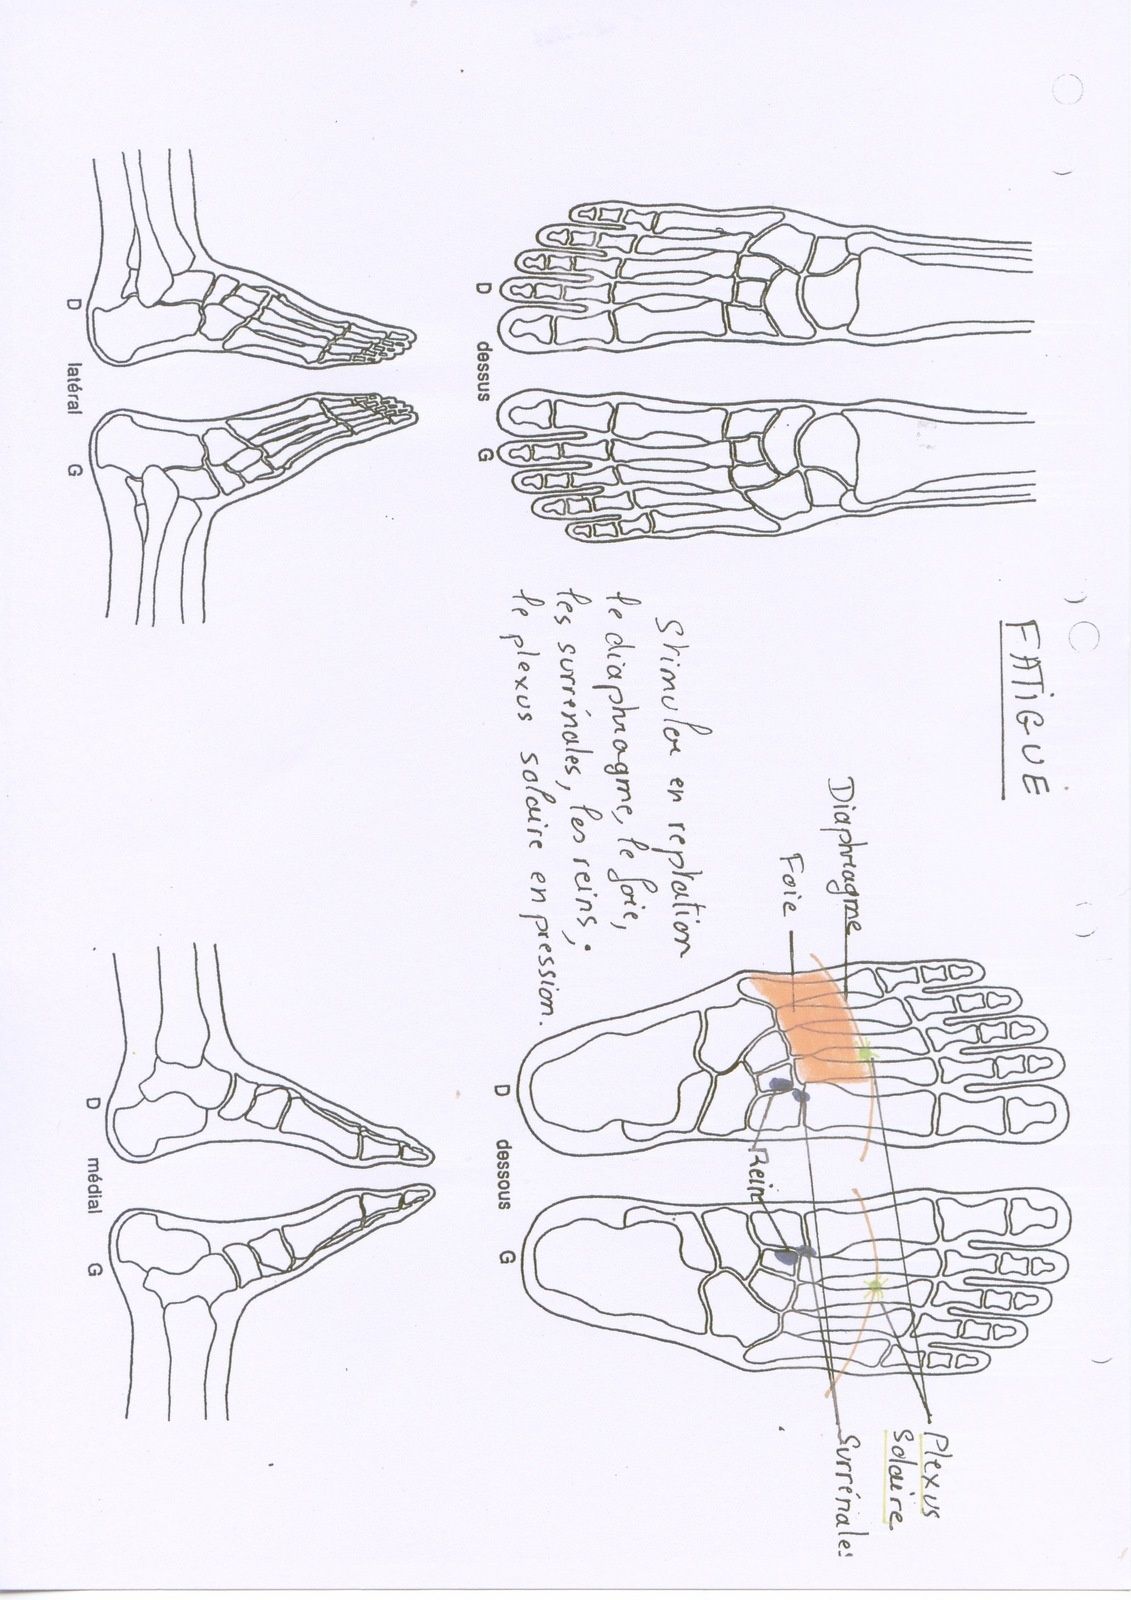 FATIGUE
D dessus G
Stimuler en reptation
le diaphragme, le foie,
les surrénales, les reins,
le plexus solaire en pression.
Diaphragme
Foie
Rein
Plexus
Solaire
Surrénales
D dessous G
D latéral G
D médial G